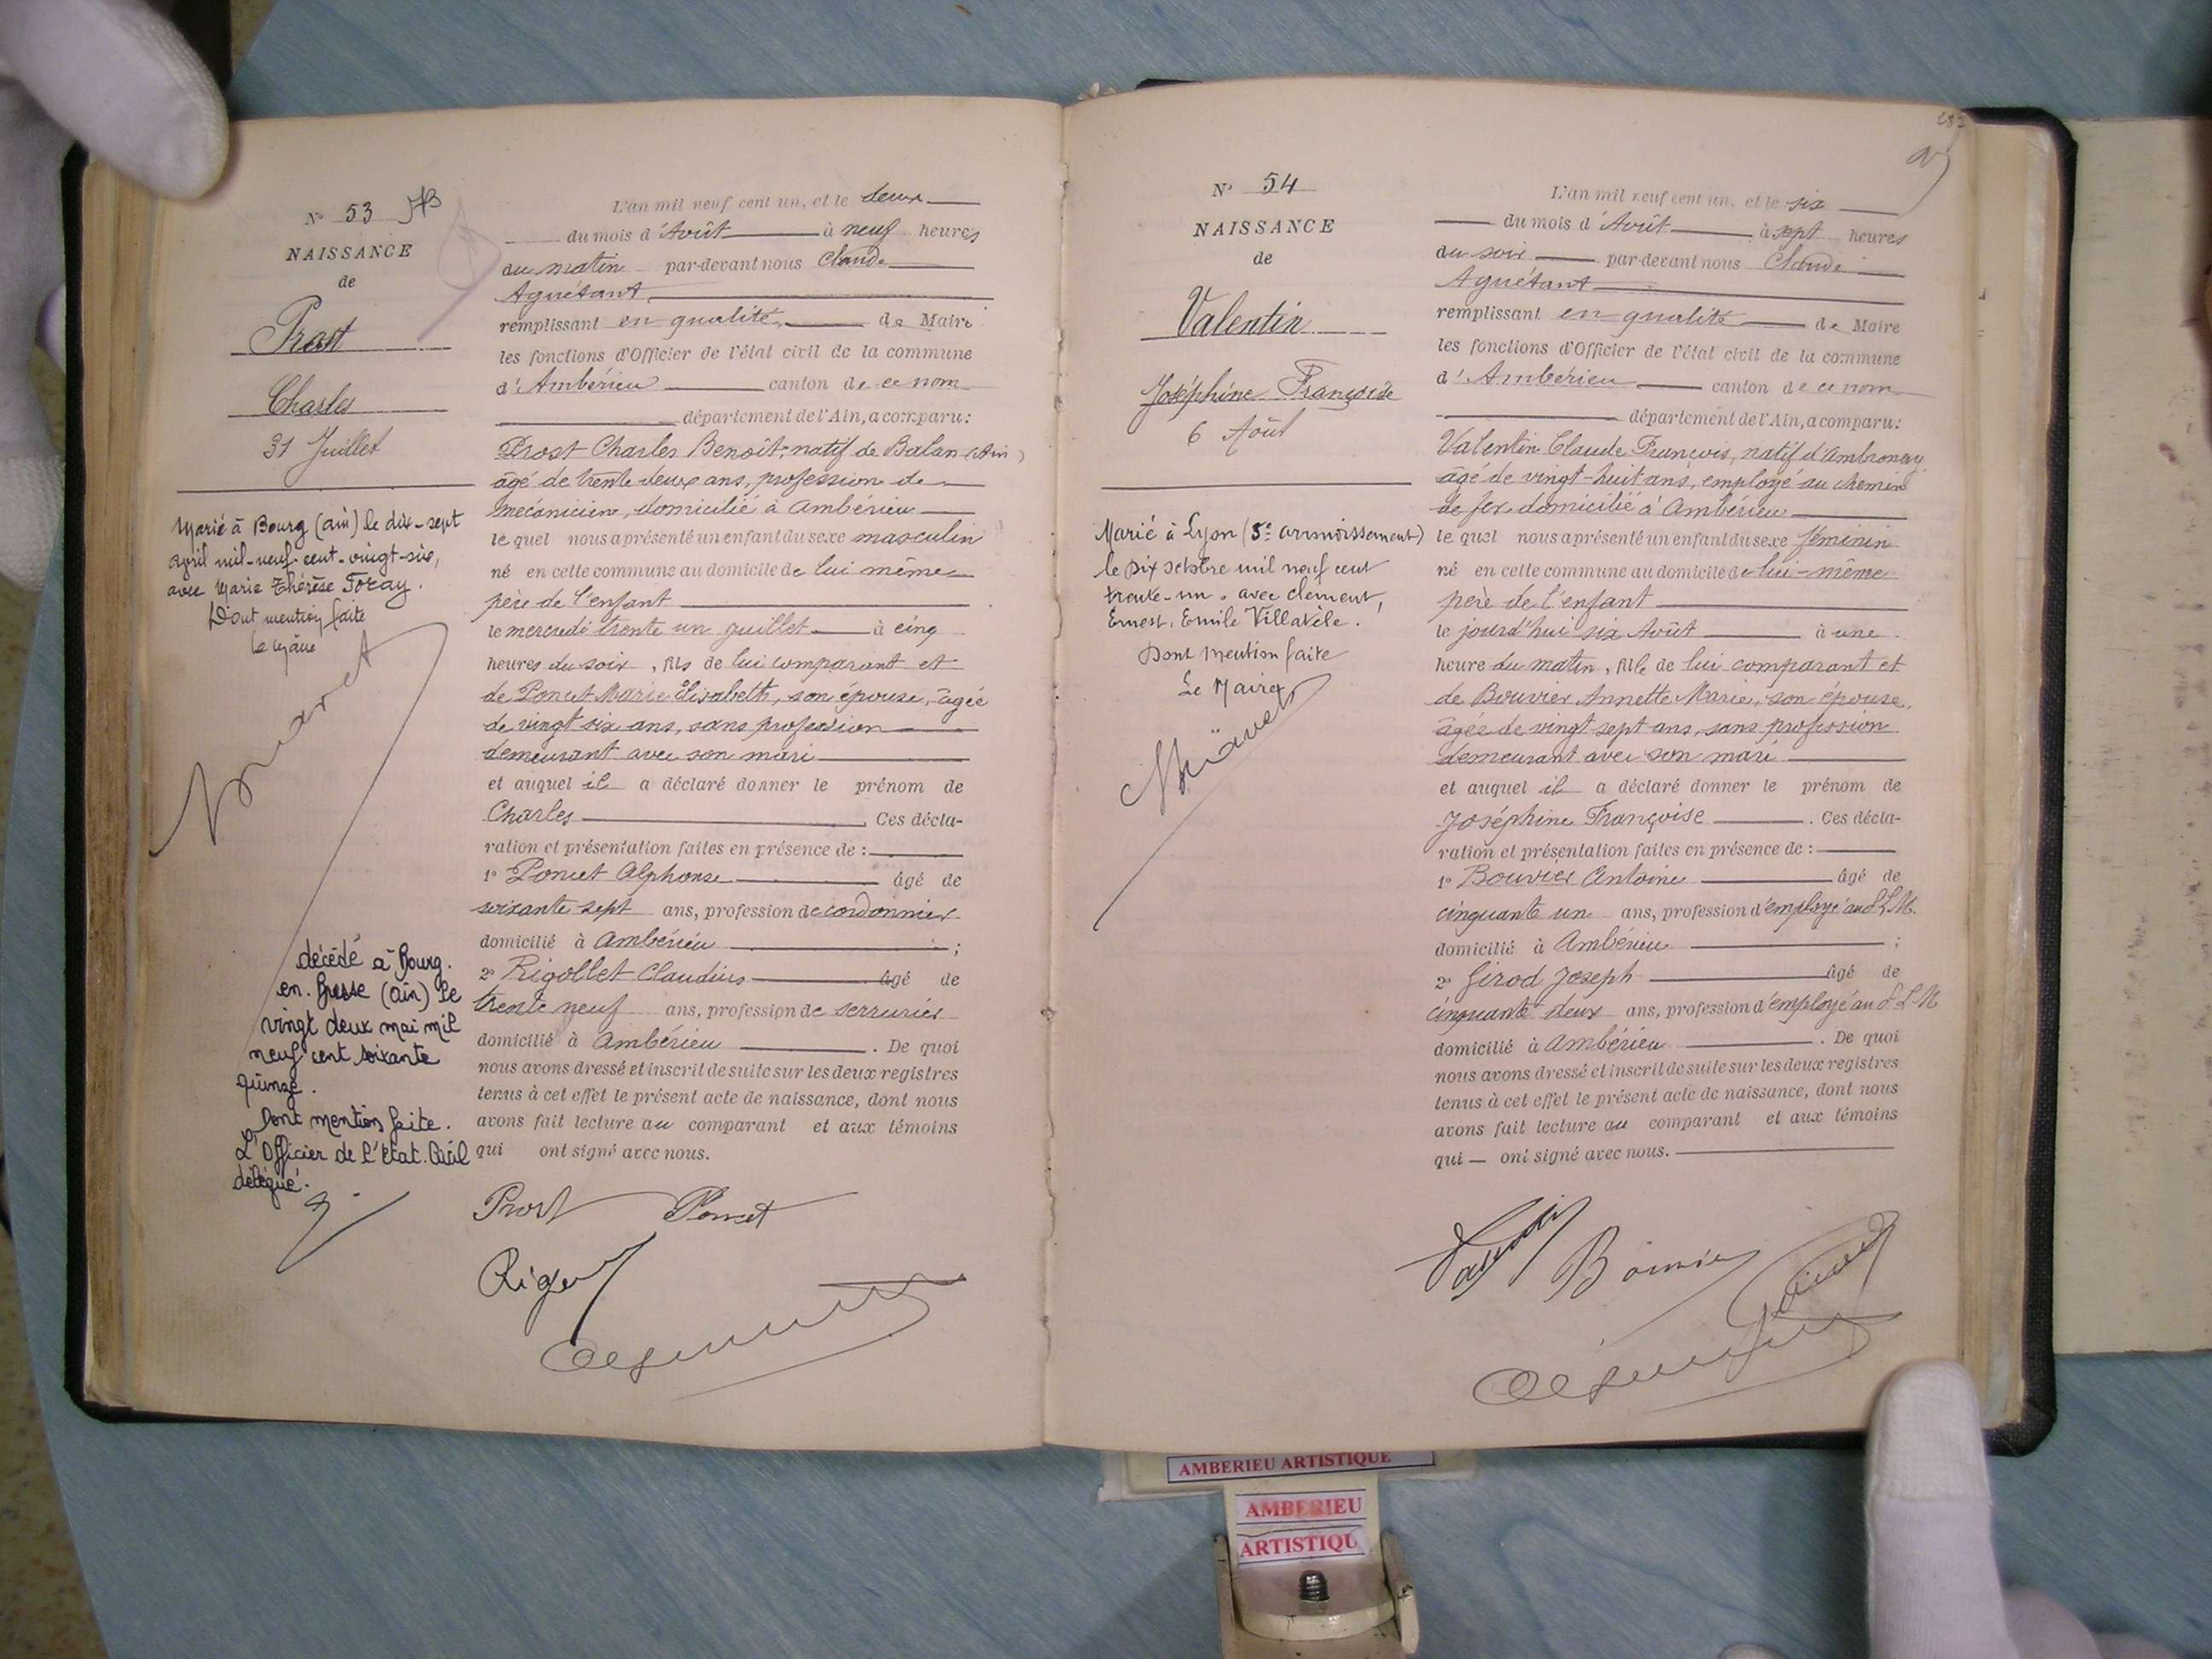 N° 53
NAISSANCE
de
Prost
Charles
31 Juillet
Marié à Bourg (ain) le dix-sept
avril mil-neuf-cent-vingt-six,
avec Marie Thérèse Foray.
Dont mention faite
Le Maire
décédé à Bourg.
en. Bresse (ain) le
vingt deux mai mil
neuf cent soixante
quinze.
Dont mention faite.
L'Officier de l'Etat. Civil
délégué.
L'an mil neuf cent un, et le deux
du mois d'Août à neuf heures
du matin par-devant nous Claude
Aguétant
remplissant en qualité de Maire
les fonctions d'Officier de l'état civil de la commune
d'Ambérieu canton de ce nom
département de l'Ain, a comparu:
Prost Charles Benoît, natif de Balan (Ain)
âgé de trente deux ans, profession de
mécanicien, domicilié à Ambérieu
le quel nous a présenté un enfant du sexe masculin
né en cette commune au domicile de lui même
père de l'enfant
le mercredi trente un juillet à cinq
heures du soir, fils de lui comparant et
de Poncet Marie Elisabeth, son épouse, âgée
de vingt six ans, sans profession
demeurant avec son mari
et auquel il a déclaré donner le prénom de
Charles . Ces décla-
ration et présentation faites en présence de :
1° Poncet Alphonse âgé de
soixante sept ans, profession de cordonnier
domicilié à Ambérieu ;
2° Rigollet Claudius âgé de
trente neuf ans, profession de serrurier
domicilié à Ambérieu . De quoi
nous avons dressé et inscrit de suite sur les deux registres
tenus à cet effet le présent acte de naissance, dont nous
avons fait lecture au comparant et aux témoins
qui ont signé avec nous.
Prost Poncet
N° 54
NAISSANCE
de
Valentin
Joséphine Françoise
6 Août
Marié à Lyon (5e arrondissement)
le dix octobre mil neuf cent
trente-un. avec Clément,
Ernest, Emile Villavèle.
Dont mention faite
Le Maire
L'an mil neuf cent un, et le six
du mois d'Août à sept heures
du soir par-devant nous Claude
Aguétant
remplissant en qualité de Maire
les fonctions d'Officier de l'état civil de la commune
d'Ambérieu canton de ce nom
département de l'Ain, a comparu:
Valentin Claude François, natif d'Ambronay
âgé de vingt-huit ans, employé au chemin
de fer domicilié à Ambérieu
le quel nous a présenté un enfant du sexe féminin
né en cette commune au domicile de lui-même
père de l'enfant
le jourd'hui six Août à une
heure du matin, fille de lui comparant et
de Bouvier Annette Marie, son épouse,
âgée de vingt sept ans, sans profession
demeurant avec son mari
et auquel il a déclaré donner le prénom de
Joséphine Françoise . Ces décla-
ration et présentation faites en présence de :
1° Bouvier Antoine âgé de
cinquante un ans, profession d'employé au P.L.M.
domicilié à Ambérieu ;
2° Girod Joseph âgé de
cinquante deux ans, profession d'employé au P.L.M
domicilié à Ambérieu . De quoi
nous avons dressé et inscrit de suite sur les deux registres
tenus à cet effet le présent acte de naissance, dont nous
avons fait lecture au comparant et aux témoins
qui — ont signé avec nous.
AMBERIEU ARTISTIQUE
AMBERIEU
ARTISTIQU